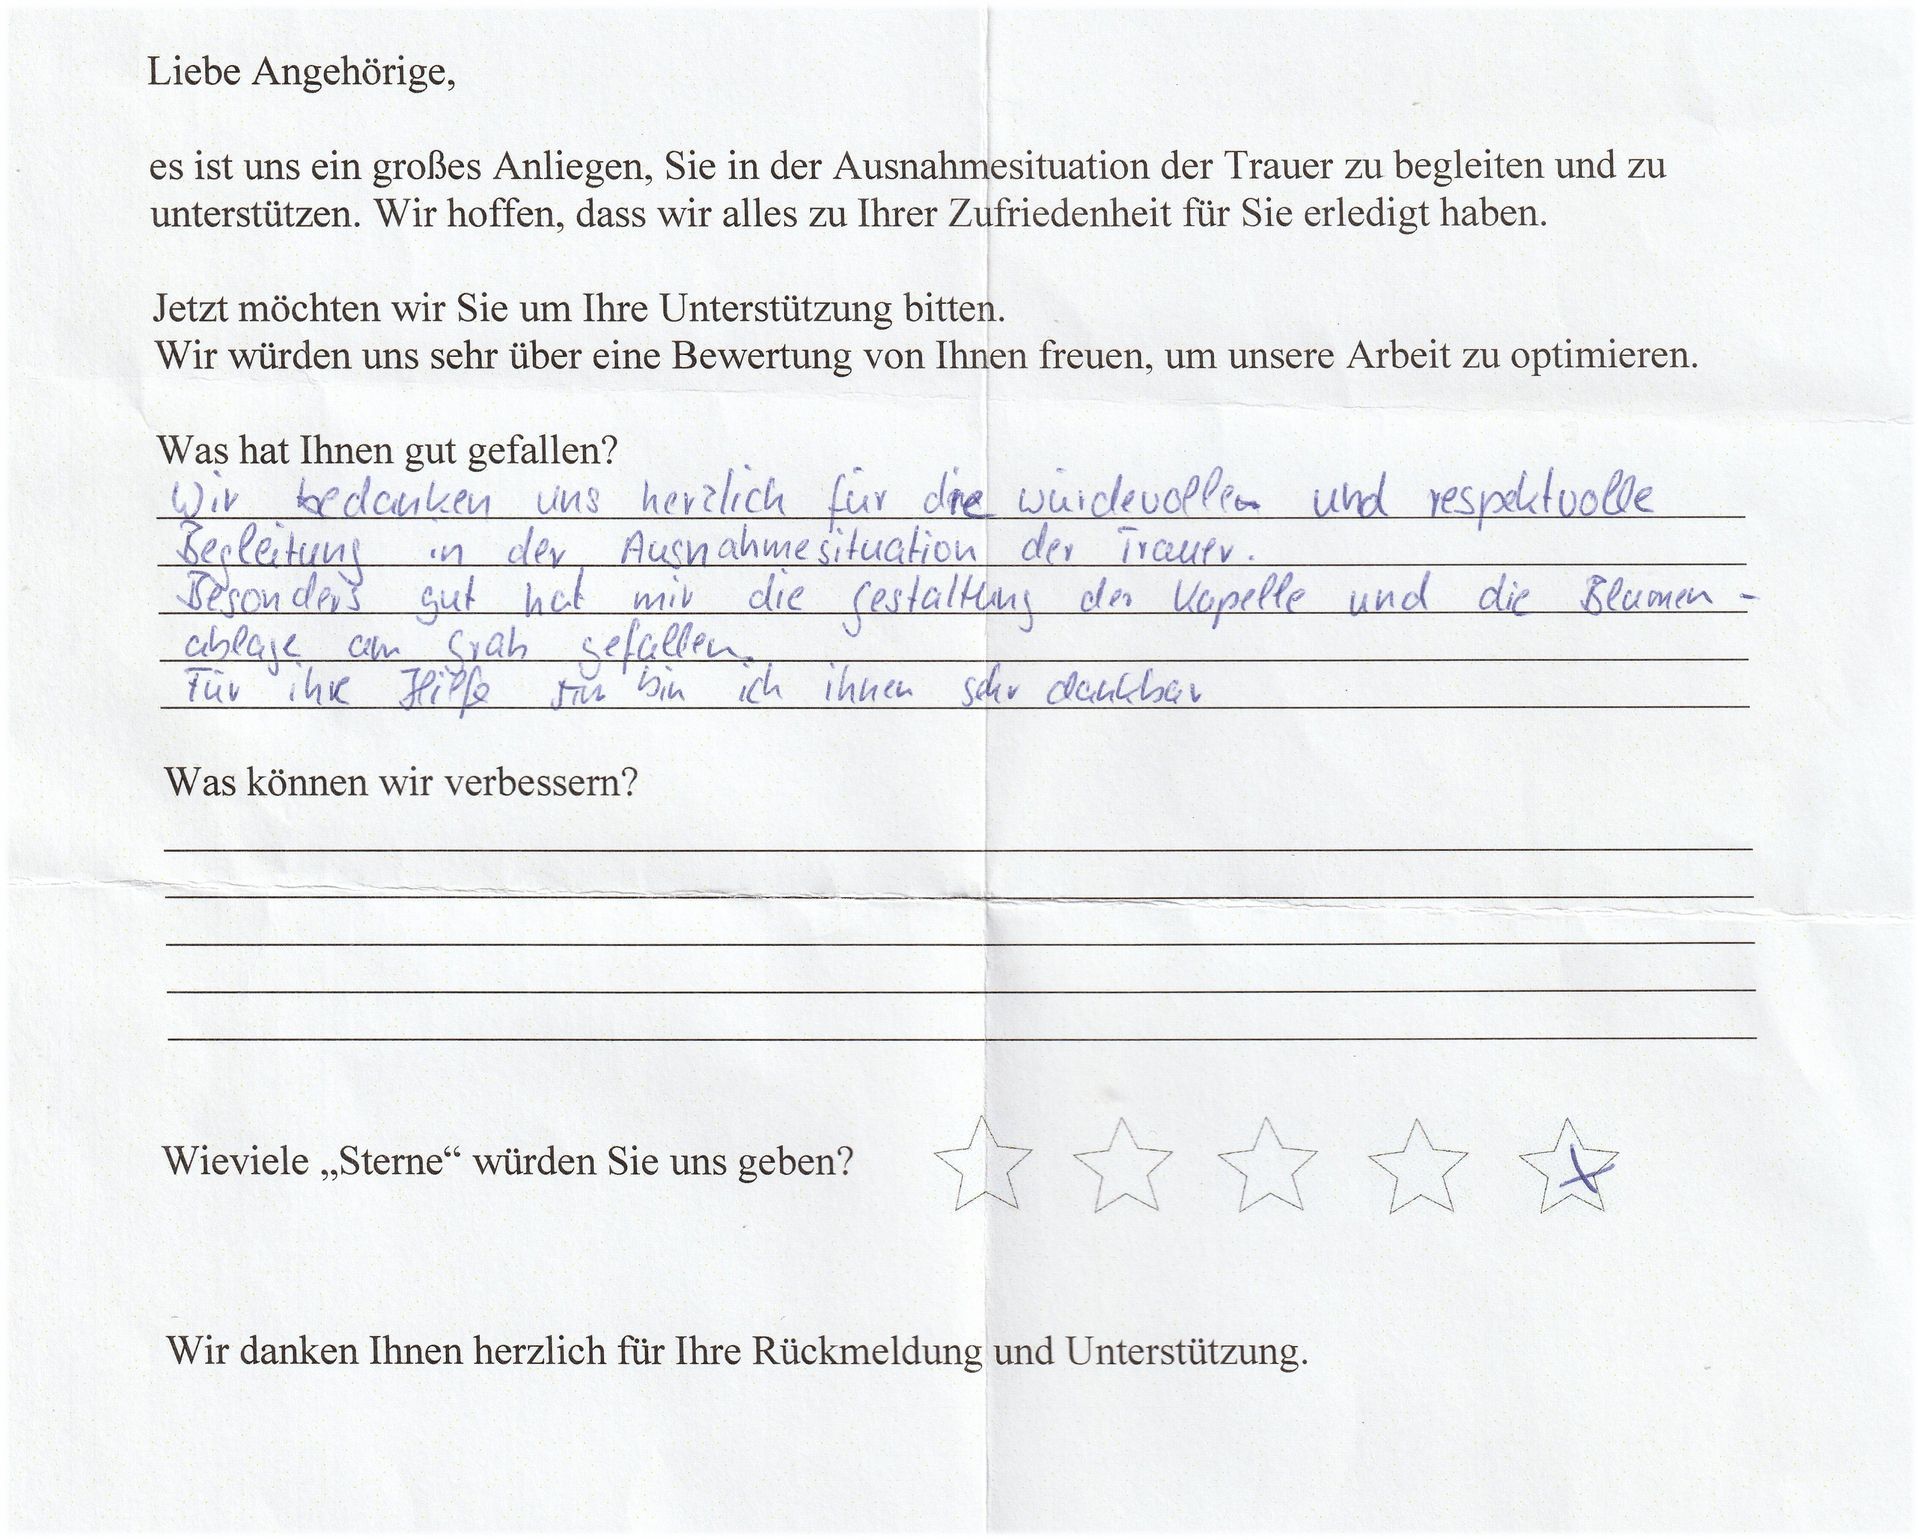 Liebe Angehörige,
es ist uns ein großes Anliegen, Sie in der Ausnahmesituation der Trauer zu begleiten und zu
unterstützen. Wir hoffen, dass wir alles zu Ihrer Zufriedenheit für Sie erledigt haben.
Jetzt möchten wir Sie um Ihre Unterstützung bitten.
Wir würden uns sehr über eine Bewertung von Ihnen freuen, um unsere Arbeit zu optimieren.
Was hat Ihnen gut gefallen?
Wir bedanken uns herzlich für die würdevollen und respektvolle
Begleitung in der Ausnahmesituation der Trauer.
Besonders gut hat mir die gestaltung der Kapelle und die Blumen-
ablage am Grab gefallen.
Für ihre Hilfe bin ich ihnen sehr dankbar
Was können wir verbessern?
Wieviele „Sterne“ würden Sie uns geben?
Wir danken Ihnen herzlich für Ihre Rückmeldung und Unterstützung.